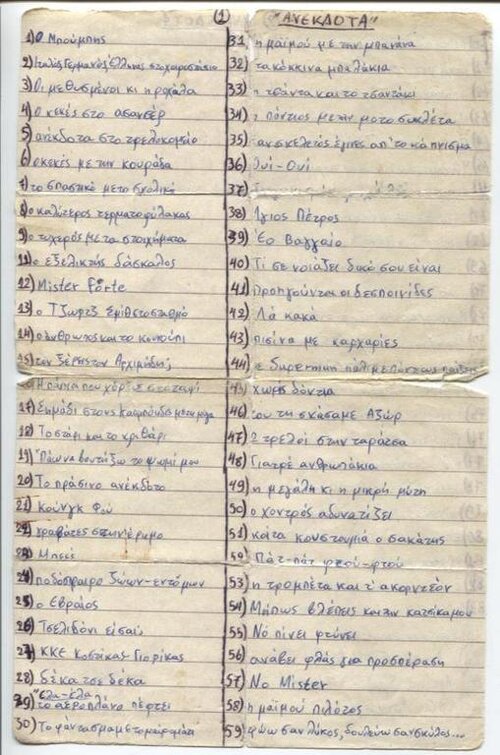 ①
"ΑΝΕΚΔΟΤΑ"
1) Ο Μπούμπης
2) Ιταλός Γερμανός Έλληνας στο χαρτοπαίγνιο
3) Οι μεθυσμένοι κι η ροχάλα
4) Ο κεκές στο ασανσέρ
5) ανέκδοτα στο τρελοκομείο
6) ο κεκές με την κουράδα
7) το σπαστικό με το σχολικό
8) ο καλύτερος τερματοφύλακας
9) ο τυχερός με τα στοιχήματα
11) ο εξελικτής δάσκαλος
12) Mister Forte
13) ο Τζωρτζ
14) ο άνθρωπος και το κουνούπι
15) τον ξέρεις τον Αρχιμήδη;
16) Η πάπια που
17) Σημάδι στους
18) Το στάρι και το κριθάρι
19) Πάω να βουτάξω το ψωμί μου
20) Το πράσινο ανέκδοτο
21) Κούνγκ Φού
22) γραβάτες στην έρημο
23) Μπεές
24) ποδόσφαιρο ζώων-εντόμων
25) ο Εβραίος
26) Τσελιδόνι είσαι;
27) ΚΚΕ Κοσίκας Γιορίκας
28) δέκα τσε δέκα
29) "έλα-έλα" το αεροπλάνο πέφτει
30) Το φάντασμα με το μαρομάτι
31) η μαϊμού με την μπανάνα
32) τα κόκκινα μπαλάκια
33) η τσάντα και το τσαντάκι
34) ο πόντιος με την μοτοσυκλέτα
35) αν σκελετός έμπες απ' το κάπνισμα
36) Ουί-Ουί
37)
38) Άγιος Πέτρος
39) Έο Βαγγαίο
40) Τι σε νοιάζει δικό σου είναι
41) Προηγούνται οι δεσποινίδες
42) Λά κακά
43) πισίνα με καρχαρίες
44) ο Superman πάλι με
45) χωρίς δόντια
46) του τη σκάσαμε Αζώρ
47) 2 τρελοί στην ταράτσα
48) Γιατρέ ανθρωπάκια
49) η μεγάλη κι η μικρή μύτη
50) ο χοντρός αδυνατίζει
51) κάτα κουστουμιά ο σακάτης
52) Πάτ-πάτ φτού-φτού
53) η τρομπέτα και τ' ακορντεόν
54) Μήπως βλέπεις και την κατσίκα μου
55) Νό πίνει φτύνει
56) ανάβει φλάς για προσπέραση
57) No Mister
58) η μαϊμού πιλότος
59) τρώω σαν λύκος, δουλεύω σαν σκύλος...